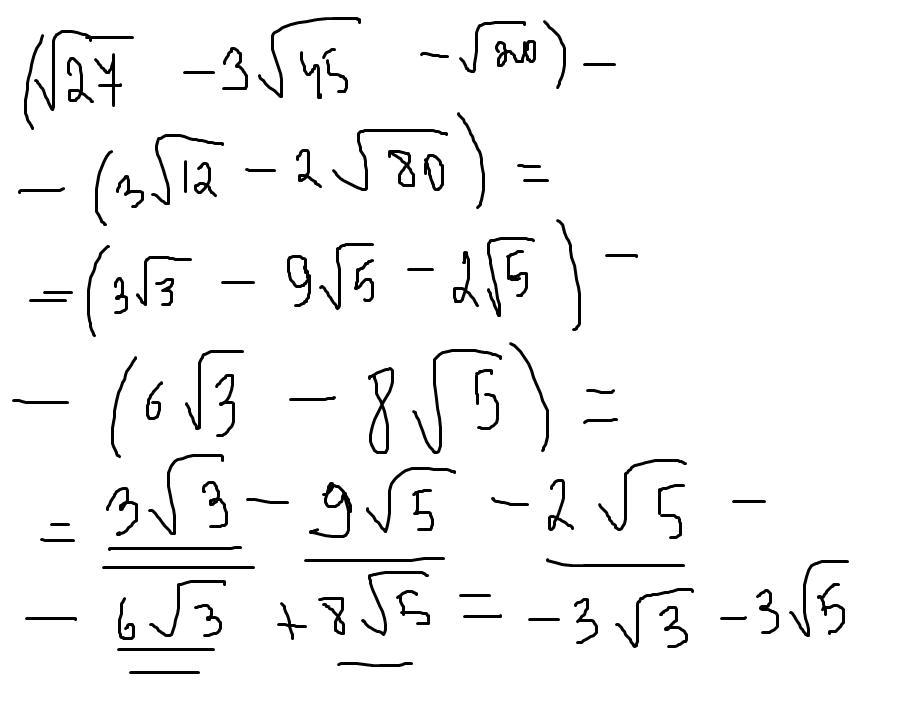 (√27 - 3√45 - √20) -
- (3√12 - 2√80) =
= (3√3 - 9√5 - 2√5) -
- (6√3 - 8√5) =
= 3√3 - 9√5 - 2√5 -
- 6√3 + 8√5 = -3√3 - 3√5